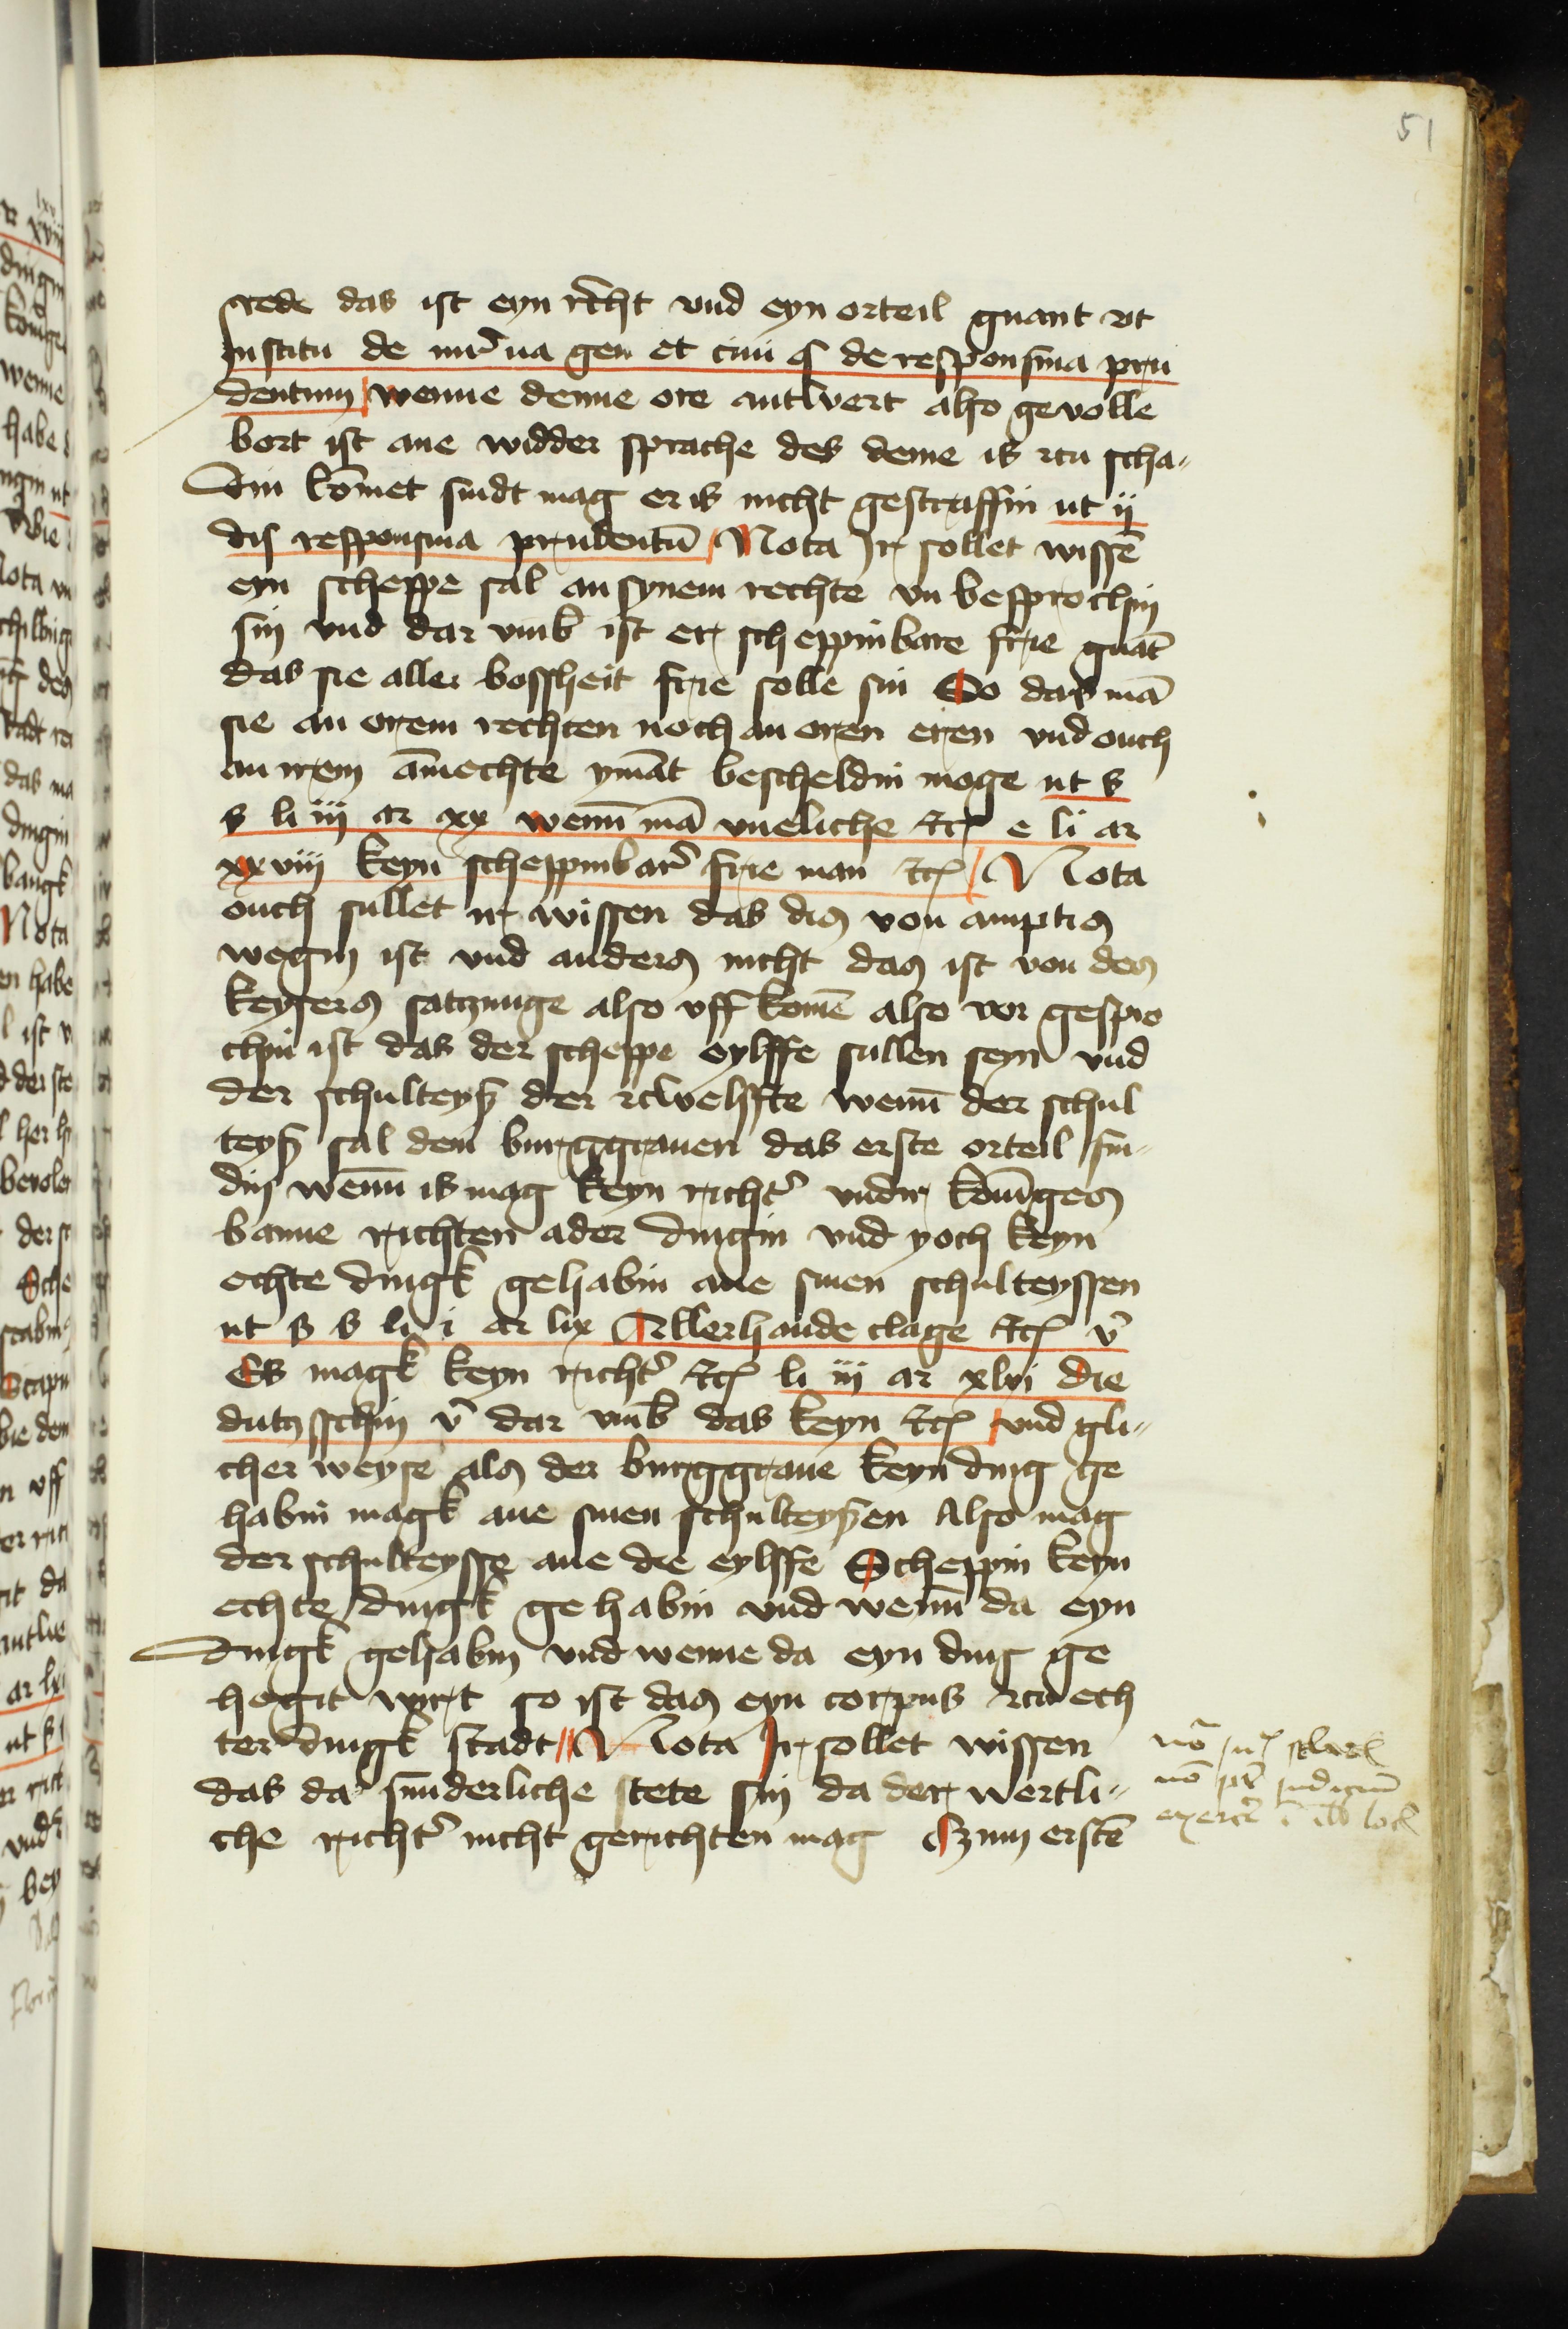 51
rede das ist eyn recht vnd eyn orteil gnant vt
Institu de iur̉ na gen et ciui § de responsina pru
dentum wenne denne ore antwert also gevolle
bort ist ane widder sprache des deme is zcu scha-
din kōmet sindt mag er is nicht gestraffin ut ij
dis responsina prudentū Nota Ir sollet wissē
eyn scheppe sal an synem rechte vnbesprochin
sin vnd dar vmb ist er scheppinbare frie gnāt
das sie aller bossheit frie solle sin So das mā
sie an orem rechten noch an oren eren vnd ouch
an irem āmechte ymāt bescheldin moge ut s
s li iij ar xx wenn̄ mā vneliche etc̃ e li ar
xxviij keyn scheppinbar̉ frie man etc̃ Nota
ouch sullet ir wissen das dis von amptis
wegin ist vnd anders nicht das ist von des
keysers satzunge also vff komē also vor gespro
chin ist das der scheppe eylffe sullen seyn vnd
der schulteyß der zcwelffte wenn̄ der schul
teyß sal dem burggrauen das erste orteil fin-
din wenn̄ is mag keyn richt̉ vndir kōniges
banne richten ader dingin vnd yoch keyn
echte dingk gehabin ane sinen schulteyssen
ut s s li i ar lix Allerhande clage etc̃ v̉
Es magk keyn richt̉ etc̃ li iij ar xlvi die
dutzschin v̉ dar vmb das keyn etc̃ vnd gli-
cher weyse als der burggraue keyn ding ge
habin magk ane sinen schulteyßen Also mag
der schulteysse ane die eylffe Scheppin keyn
echte dingk gehabin vnd wenn̄ da eyn
dingk gehabin vnd wenne da eyn ding ge
hegit wirt so ist das eyn corpus zcu ech
ter dingk stadt Nota Ir sollet wissen
das da sunderliche stete sin da der wertli-
che richt̉ nicht gerichten mag Czum erstē
nō pt̉ iudiciū
exerc̉ ī ill loc̃